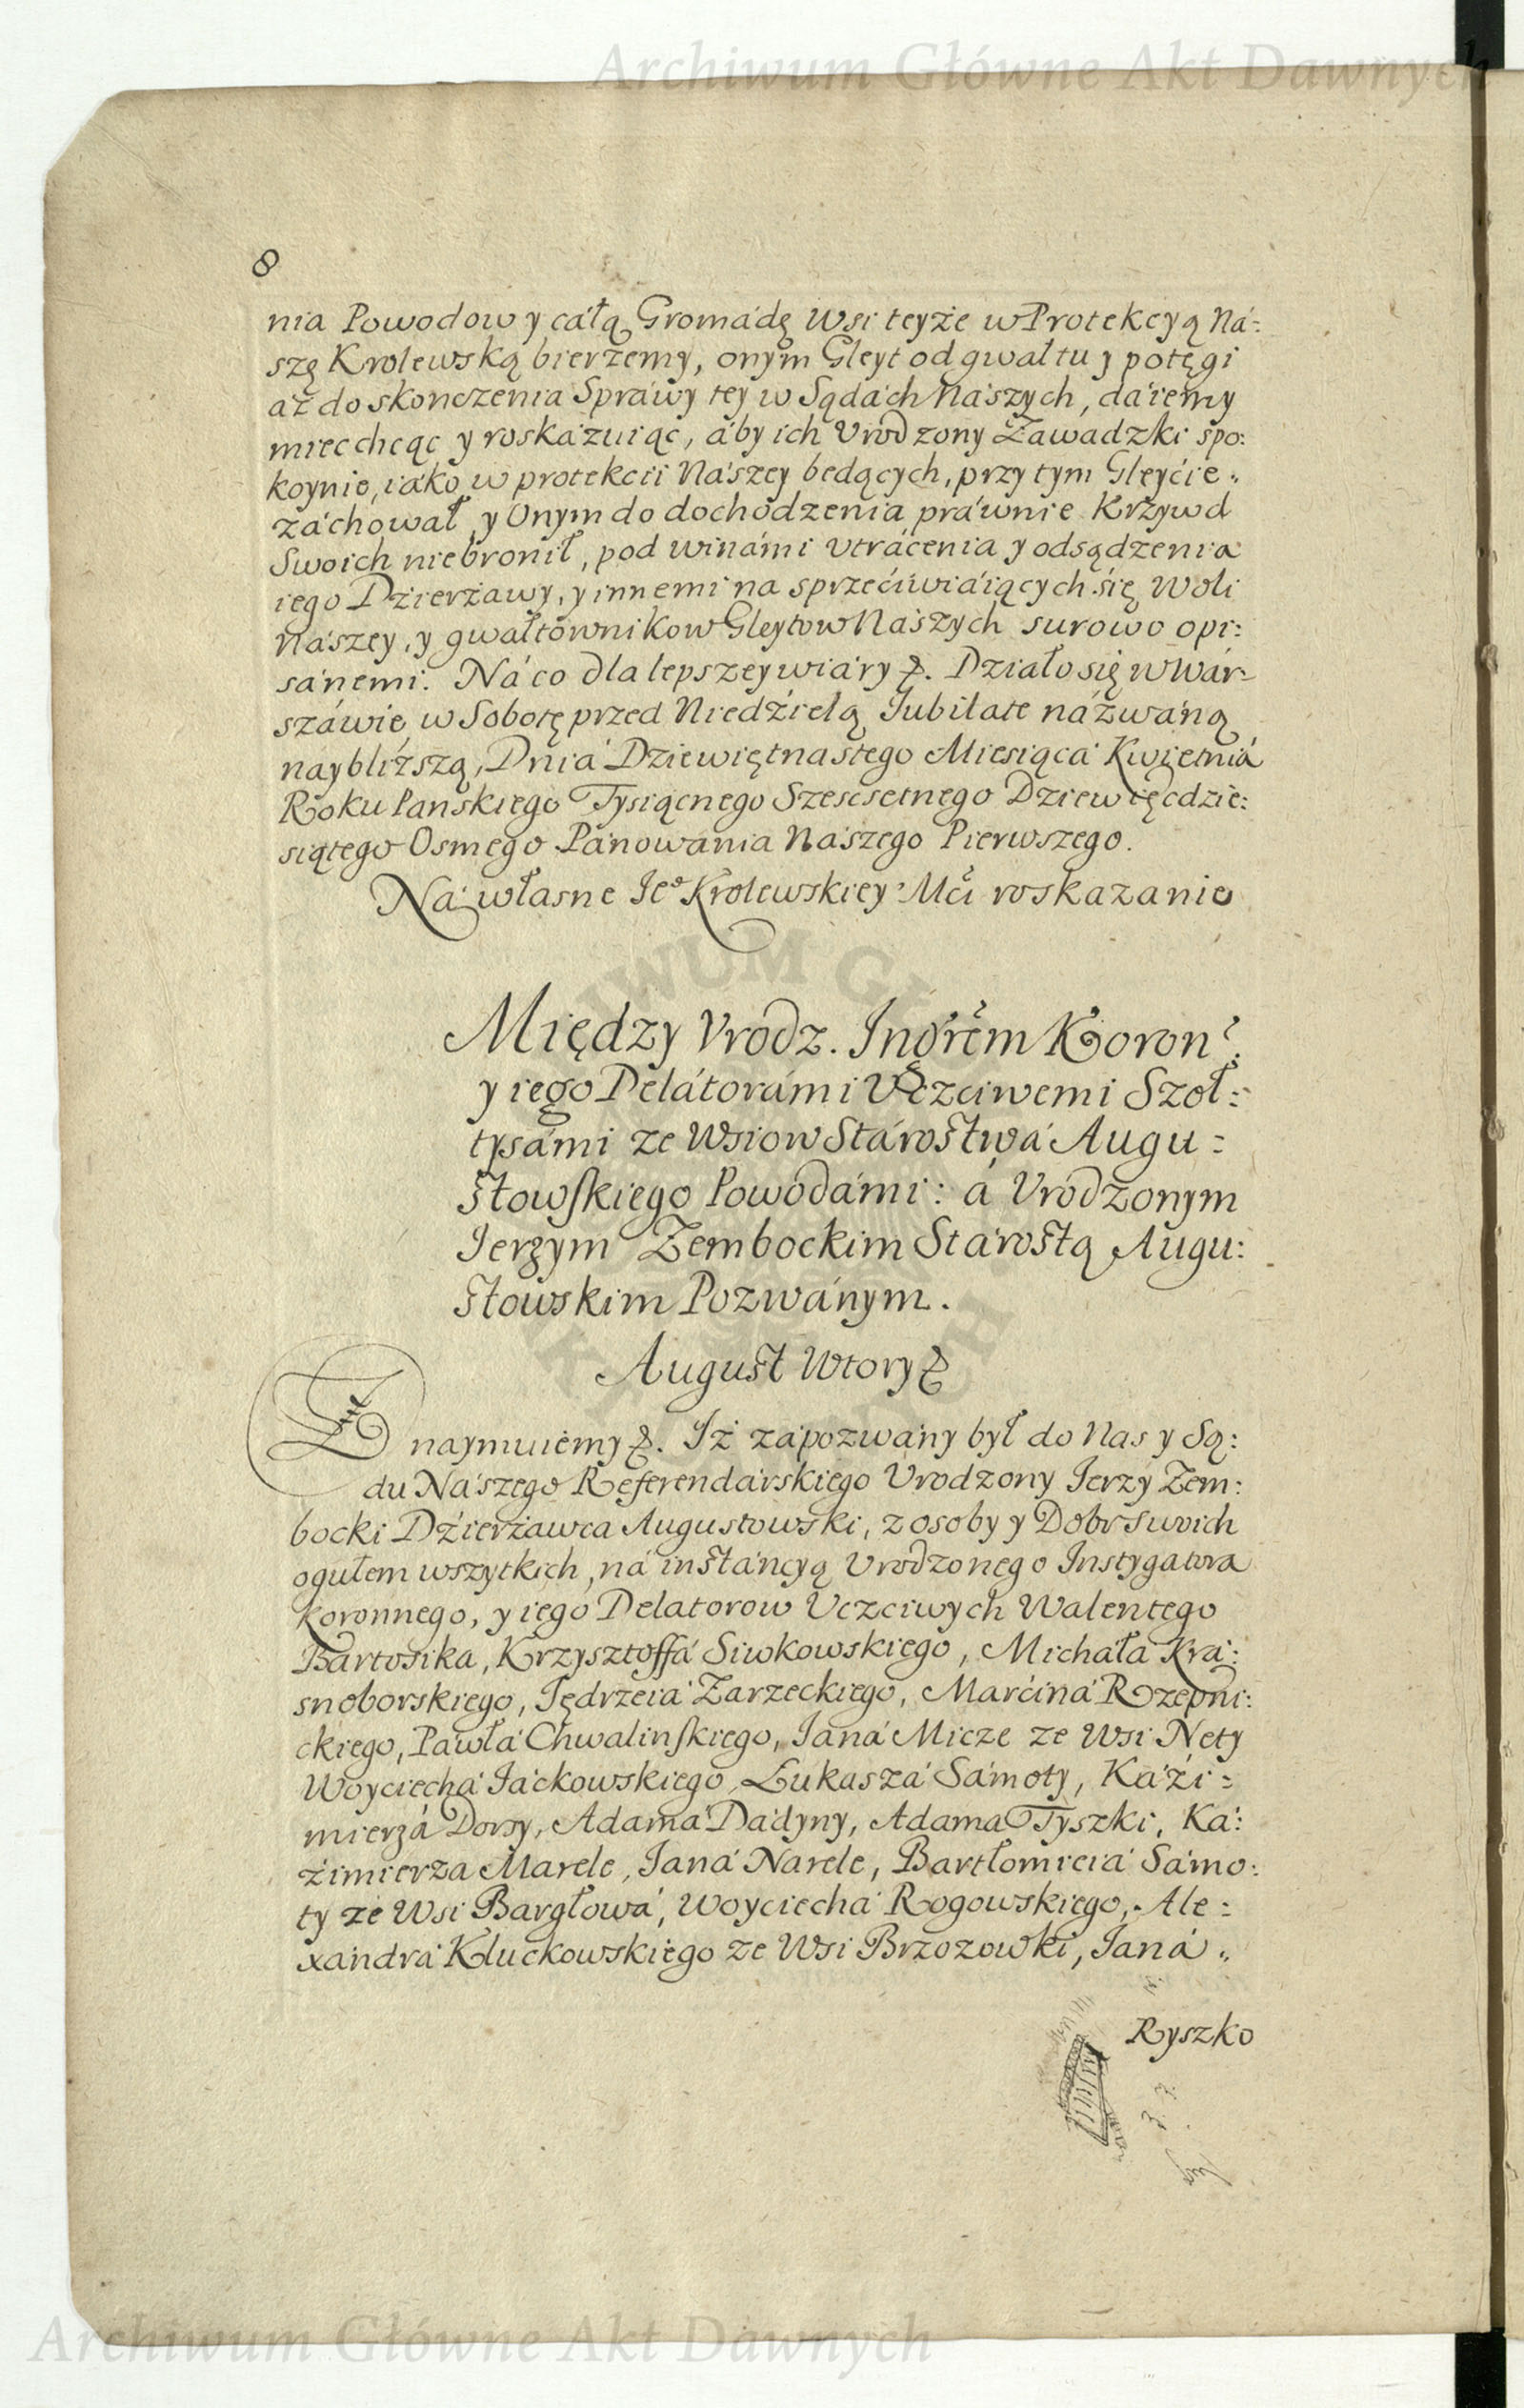 Archiwum Główne Akt Dawnych
8
nia Powodow y cáłą Gromádę Wsi teyże w Protekcyą Ná:
szę Krolewską bierzemy, onym Gleyt od gwałtu y potęgi
aż do skonczenia Spráwy tey w Sądách Nászych, dáiemy
miec chcąc y roskázuiąc, áby ich Vrodzony Zawadzki spo:
koynie, iáko w protekcii Nászey bedących, przy tym Gleyćie
záchował, y Onym do dochodzenia práwnie Krzywd
Swoich niebronił, pod winámi vtrácenia y odsądzenia
iego Dzierżawy, y innemi na sprzećiwiáiących się Woli
Nászey, y gwałtownikow Gleytow Nászych surowo opi:
sánemi. Ná co dla lepszey wiáry &. Działo się w Wár:
száwie, w Sobotę przed Niedźielą Jubilate názwáną
naybliższą, Dniá Dziewiętnastego Miesiącá Kwietniá
Roku Panskiego Tysiącnego Szescsetnego Dziewięcdzie:
siątego Osmego Pánowánia Nászego Pierwszego.
Ná własne Jeº Krolewskiey Mći roskazanie
Między Vrodz. Ingrem Koron:
y iego Delátorámi Vczciwemi Szoł:
tysámi ze Wsiow Stárostwá Augu:
stowskiego Powodámi: á Vrodzonym
Jerzym Zembockim Stárostą Augu:
stowskim Pozwánym.
August Wtory &
Znaymuiemy &. Iż zápozwány był do Nas y Są:
du Nászego Referendárskiego Urodzony Jerzy Zem:
bocki Dźierżawca Augustowski, z osoby y Dobr Swoich
ogułem wszytkich, ná instáncyą Vrodzonego Instygatora
Koronnego, y iego Delatorow Vczciwych Walentego
Bartosika, Krzysztoffá Siwkowskiego, Michała Krá:
snoborskiego, Jędrzeiá Zarzeckiego, Márćiná Rzepni:
ckiego, Páwłá Chwalinskiego, Janá Micze ze Wsi Nety
Woyciechá Jáckowskiego, Łukaszá Sámoty, Káźi:
mierzá Dorsy, Adamá Dádyny, Adama Tyszki, Ká:
źimierza Marele, Janá Narele, Bartłomieiá Sámo:
ty ze Wsi Bargłowá, Woyciechá Rogowskiego, Ale:
xándrá Kluckowskiego ze Wsi Brzozowki, Janá
Ryszko
Archiwum Główne Akt Dawnych